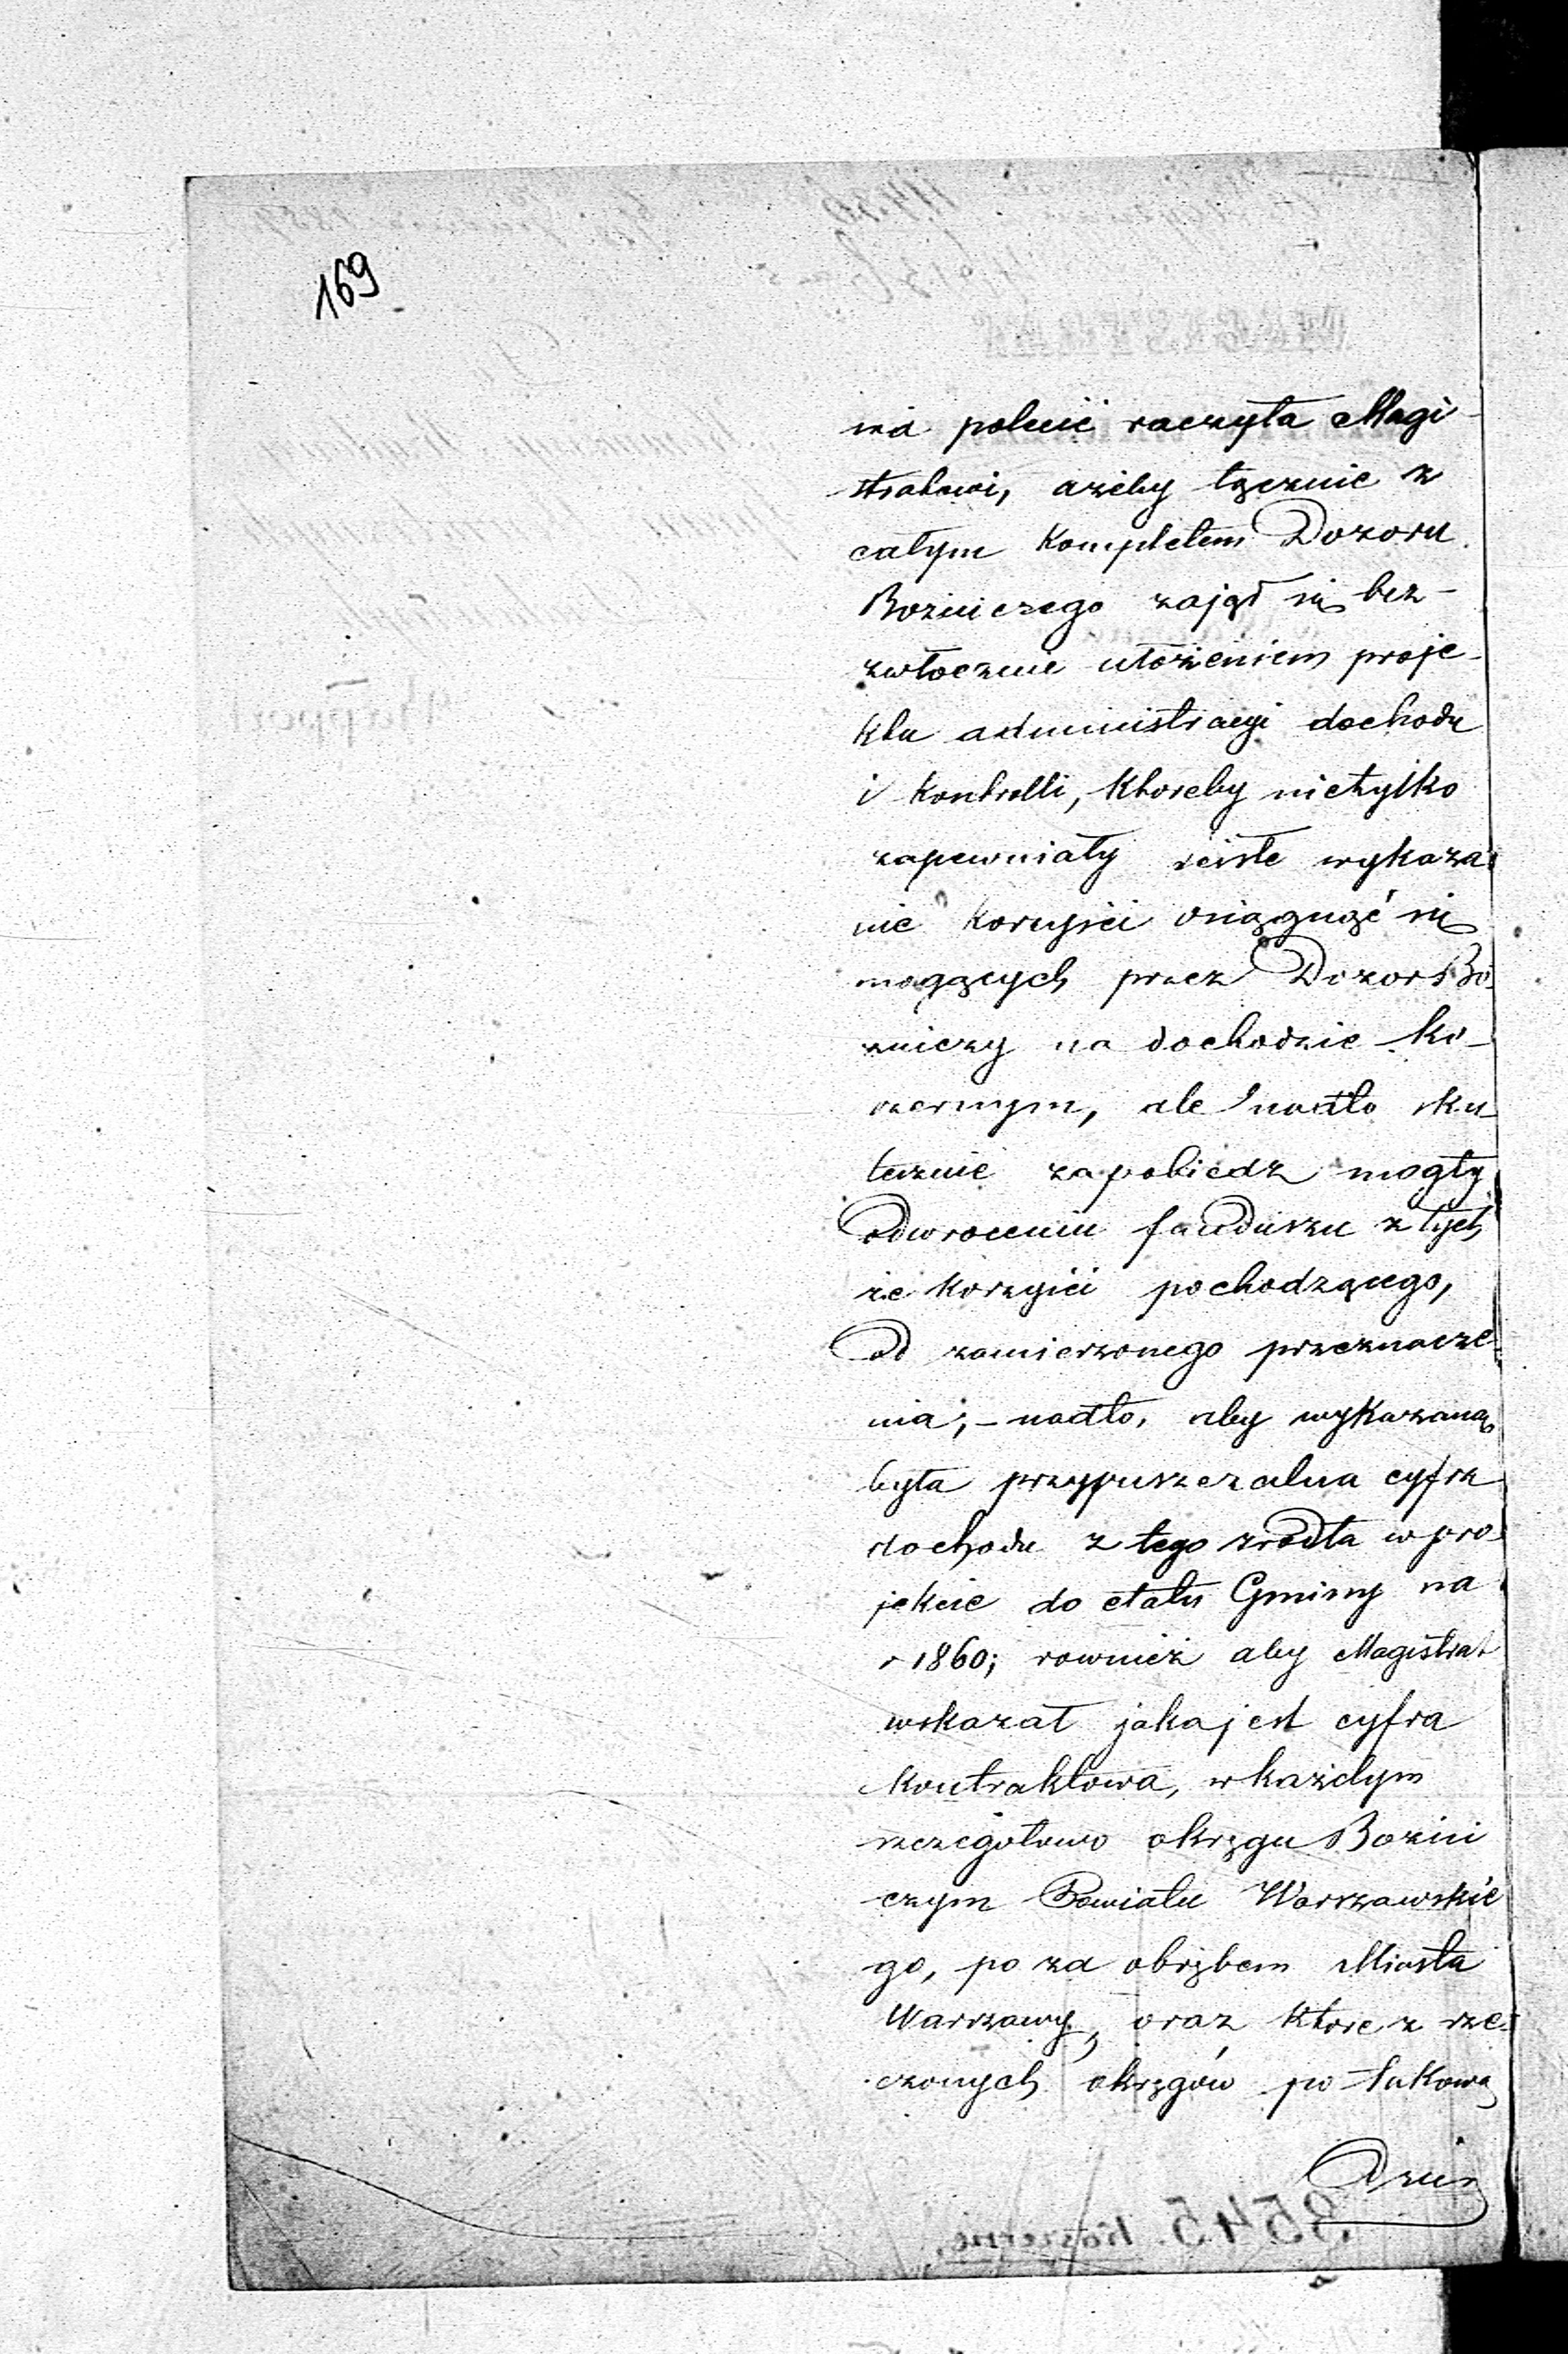 169
wa polecić raczyła Magi-
stratowi, ażeby łącznie z
całym kompletem Dozoru
Bożniczego zajął się bez-
zwłocznie ułożeniem proje-
ktu administracyi dochodu
i kontrolli, któreby nietylko
zapewniały ścisłe wykaza-
nie korzyści osiągnąć się
mogących przez Dozor Bó-
żniczy na dochodzie ko-
szernym, ale nadto sku-
tecznie zapobiedz mogły
odwroceniu funduszu z tych
że korzyści pochodzącego,
od zamierzonego przeznacze-
nia; – nadto, aby wykazaną
była przypuszczalna cyfra
dochodu z tego źrodła w pro-
jekcie do etatu Gminy na
r 1860; rownież aby Magistrat
wskazał jaka jest cyfra
kontraktowa, w każdym
szczegołowo okręgu Bożni
czym Powiatu Warszawskie
go, po za obrębem Miasta
Warszawy, oraz które z rze-
czonych okręgów po